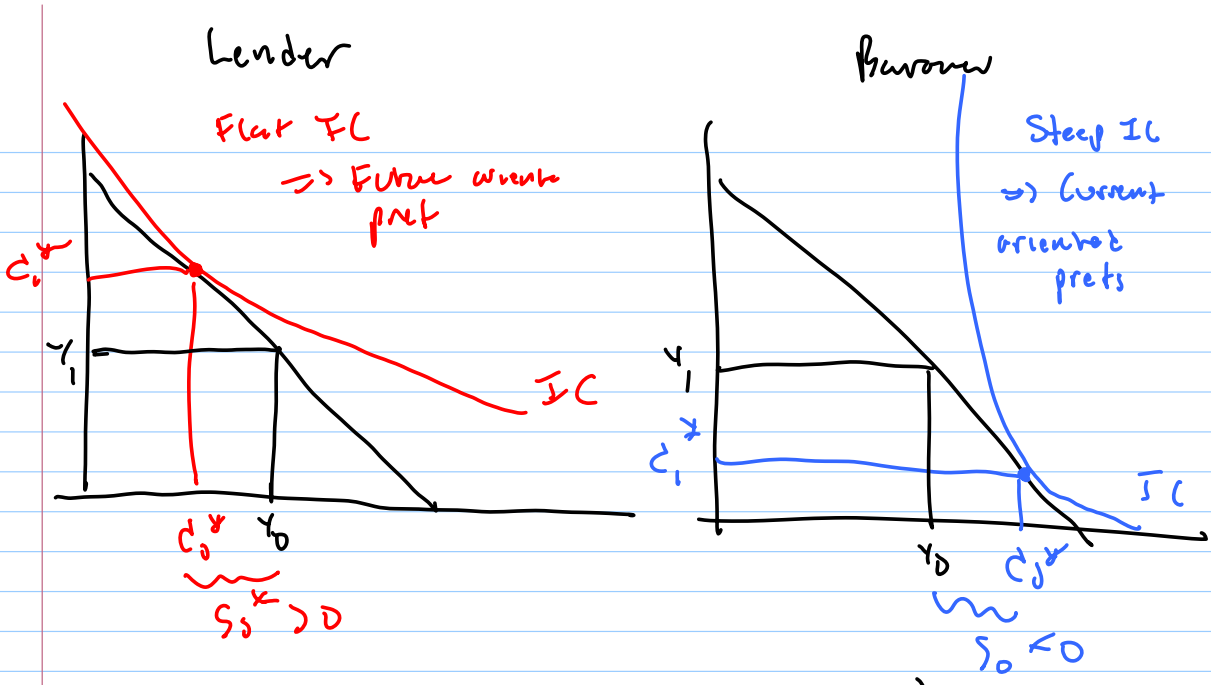 Lender
Flat IC
=> Future oriente
pref
C₁*
Y₁
IC
C₀*
Y₀
S₀* > 0
Borower
Steep IC
=> Current
oriented
prefs
Y₁
C₁*
IC
Y₀
C₀*
S₀ < 0